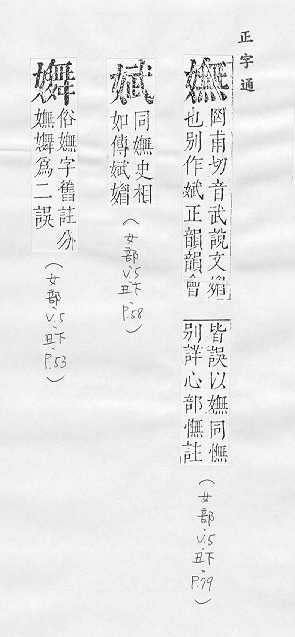 正字通
嫵
罔甫切音武說文媚
也别作娬正韻韻會
皆誤以嫵同憮
别詳心部憮註
(女部、V.5、丑下、P.79)
娬
同嫵史相
如傳娬媚
(女部、V.5、丑下、P.58)
俗嫵字舊註分
嫵㒇為二誤
(女部、V.5、丑下、P.53)